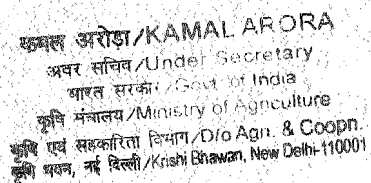 कमल अरोड़ा/KAMAL ARORA
अवर सचिव/Under Secretary
भारत सरकार/Govt. of India
कृषि मंत्रालय/Ministry of Agriculture
कृषि एवं सहकारिता विभाग/D/o Agri. & Coopn.
कृषि भवन, नई दिल्ली/Krishi Bhawan, New Delhi-110001